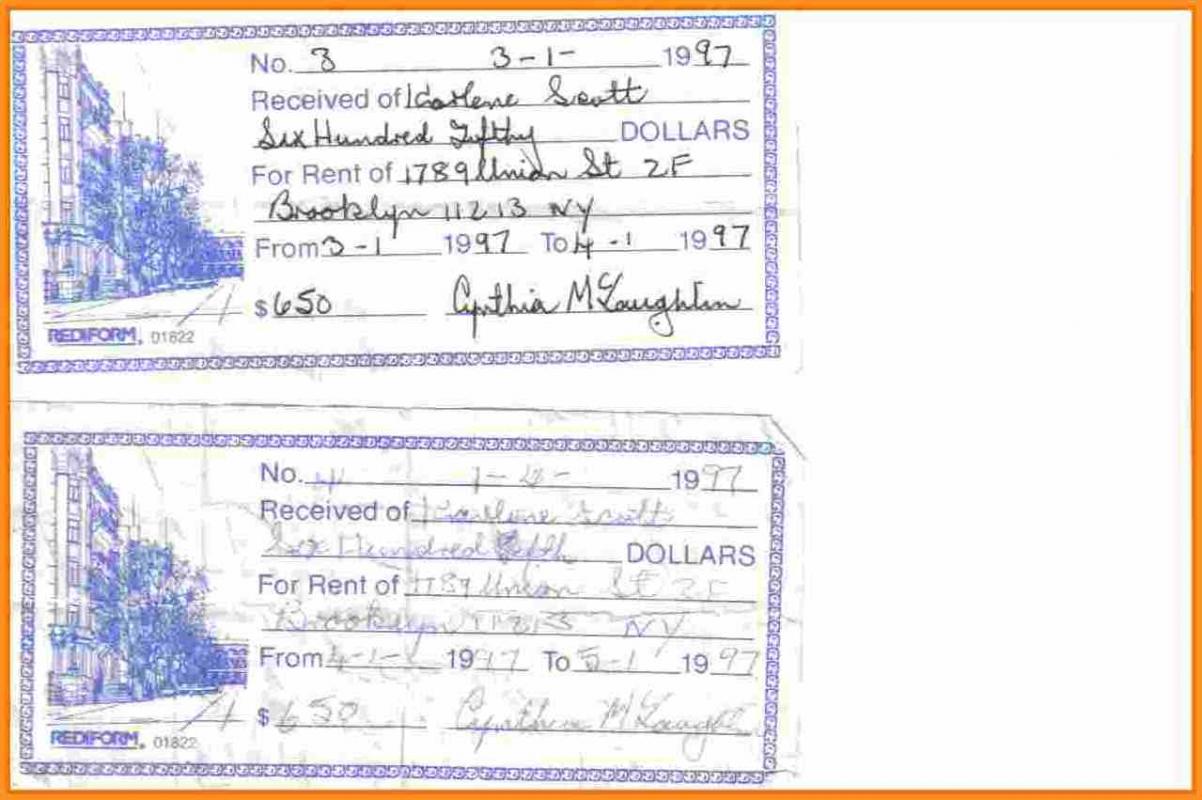 No. 3 3-1- 1997
Received of Karlene Scott
Six Hundred Fifthy DOLLARS
For Rent of 1789 Union St 2F
Brooklyn 11213 NY
From 3-1 1997 To 4-1 1997
$650 Cynthia McLaughlin
REDIFORM® 01822
No. 4 1-4- 1997
Received of Karlene Scott
Six Hundred DOLLARS
For Rent of 1789 Union St 2F
Brooklyn 11213 NY
From 4-1- 1997 To 5-1 1997
$650 Cynthia
REDIFORM® 01822